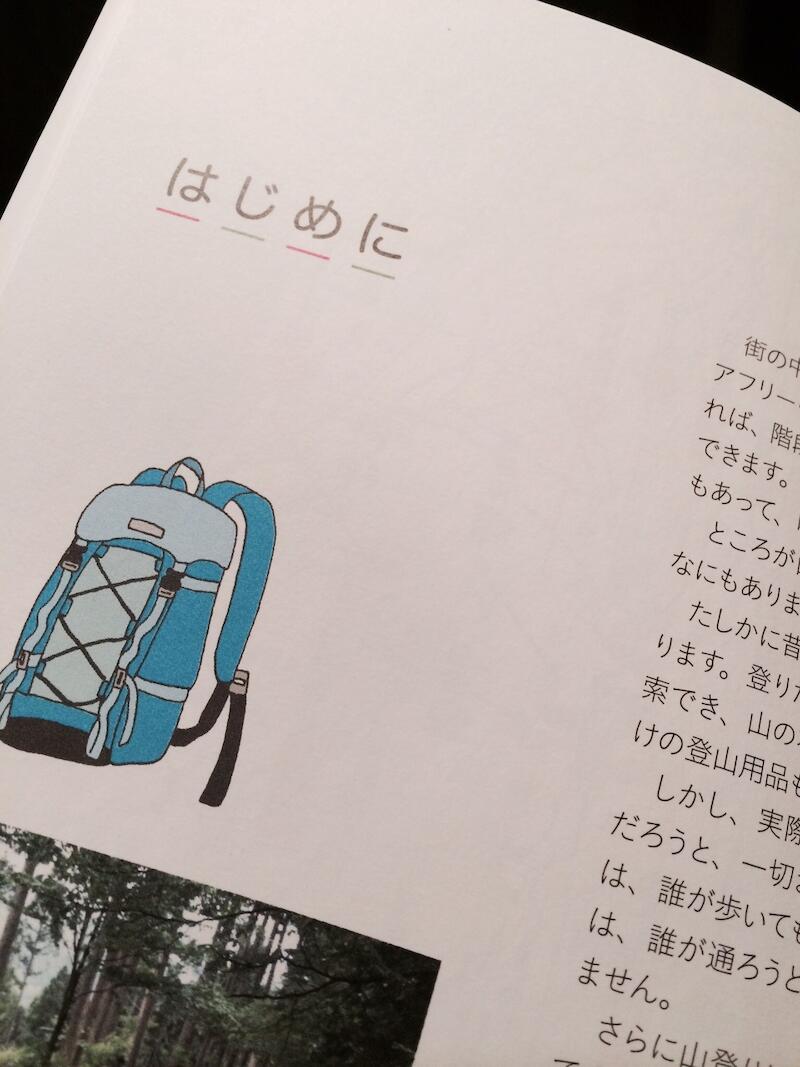 はじめに
街の中
アフリー
れば、階段
できます。
もあって、
ところが
なにもありま
たしかに昔
ります。登りた
索でき、山の
けの登山用品も
しかし、実際
だろうと、一切
は、誰が歩いても
は、誰が通ろうと
ません。
さらに山登り